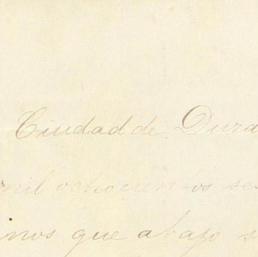 Ciudad de Dura
mil ochocien-os se
inos que abajo s